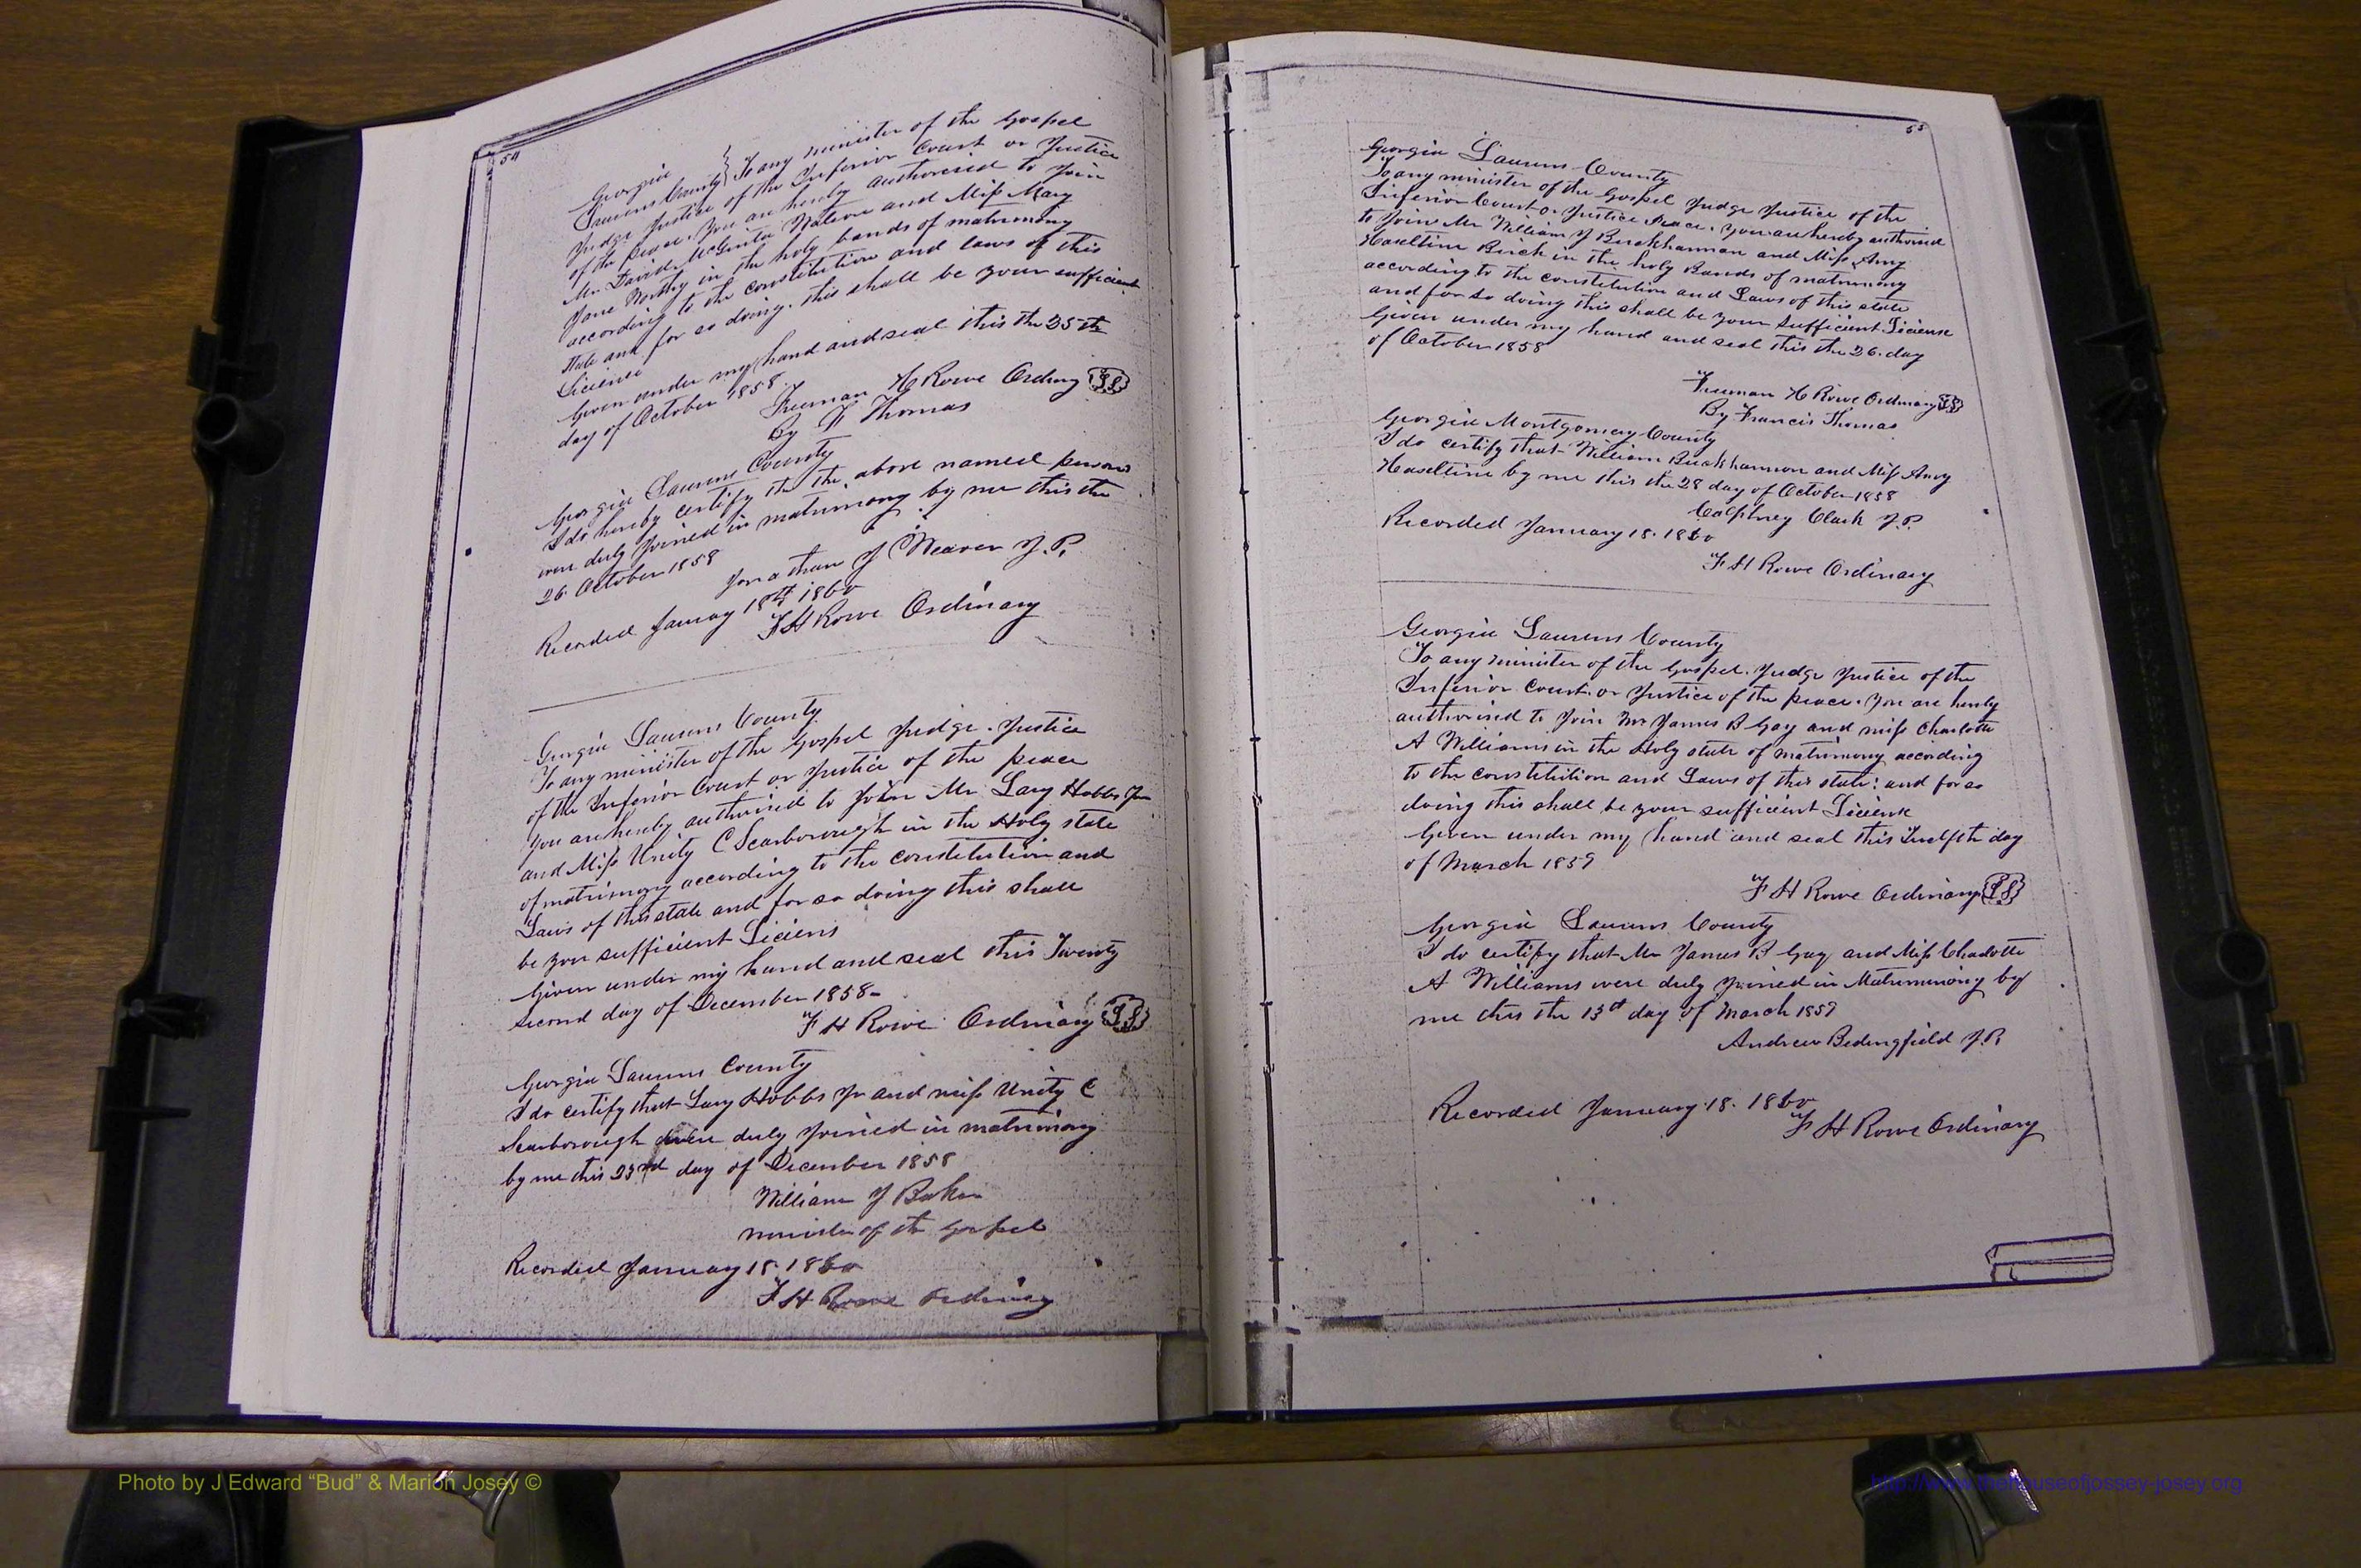 54
Georgia
Laurens County } To any minister of the Gospel
Judge Justice of the Inferior Court or Justice
of the peace. You are hereby authorised to Join
Mr. David McGinta and Miss Mary
Jane Worthy in the holy bands of matrimony
according to the constitution and laws of this
State and for so doing. this shall be your sufficient
License
Given under my hand and seal this the 25th
day of October 1858.
Freeman H Rowe Ordinry LS
By F Thomas
Georgia Laurens County
I do hereby certify tht the above named persons
were duly Joined in matrimony by me this the
26 October 1858
Jonathan J Weaver J.P.
Recorded January 18th 1860
F H Rowe Ordinary
Georgia Laurens County
To any minister of the Gospel Judge. Justice
of the Inferior Court or Justice of the peace
you are hereby authorised to Join Mr. Lary Hobbs Jr
and Miss Unity C Scarborough in the Holy state
of matrimony according to the constitution and
Laws of this state and for so doing this shall
be your sufficient Liciens
Given under my hand and seal this Twenty
second day of December 1858-
F H Rowe Ordinary LS
Georgia Laurens County
I do certify that Lary Hobbs Jr and miss Unity C
Scarborough were duly Joined in matrimony
by me this 23rd day of December 1858
William J Baker
minister of the Gospel
Recorded January 18. 1860
F H Rowe Ordinary
55
Georgia Laurens County
To any minister of the Gospel Judge Justice of the
Inferior Court or Justice Peace. you are hereby authorised
to Join Mr William J Buckhannan and Miss Amy
Haseltine Burch in the holy Bands of matrimony
according to the constitution and Laws of this state
and for so doing this shall be your sufficient Liciense
Given under my hand and seal this the 26. day
of October 1858
Freeman H Rowe Ordinary LS
By Francis Thomas
Georgia Montgomery County
I do certify that William Buckhannon and Miss Amy
Haseltine by me this the 28 day of October 1858
Calphrey Clark J.P.
Recorded January 18. 1860
F H Rowe Ordinary
Georgia Laurens County
To any minister of the Gospel. Judge Justice of the
Inferior Court. or Justice of the peace. You are hereby
authorised to Join Mr James B Gay and miss Charlotte
A Williams in the Holy state of matrimony according
to the constitution and Laws of this state: and for so
doing this shall be your sufficient Liciense
Given under my hand and seal this Twelfth day
of March 1859
F H Rowe Ordinary LS
Georgia Laurens County
I do certify that Mr James B Gay and Miss Charlotte
A Williams were duly Joined in Matrimony by
me this the 13th day of March 1859
Andrew Bedingfield J.P.
Recorded January 18. 1860
F H Rowe Ordinary
Photo by J Edward “Bud” & Marion Josey ©
http://www.thehouseofjossey-josey.org